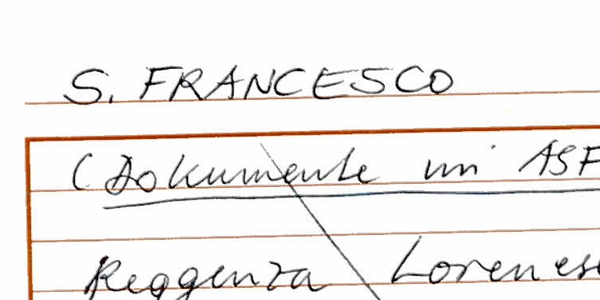 S. FRANCESCO
(Dokumente im ASF
Reggenza Lorenese